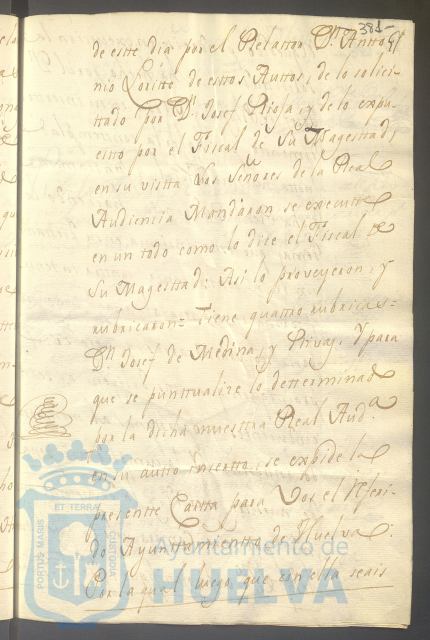 381-
de estte dia por el Relattor Dn. Antto
nio Loritte de esttos Auttos, de lo solici-
ttado por Dn. Josef Rioja, y de lo expu-
estto por el Fiscal de Su Magesttad;
en su vistta Los Señores de la Real
Audiencia Mandaron se executte
en un ttodo como lo dice el Fiscal de
Su Magesttad: Asi lo proveyeron, y
rubricaron= Tiene quattro rubricas=
Dn. Josef de Medina, y Rivas, Y para
que se punttualize lo detterminado
por la dicha nuesttra Real Auda.
en su autto insertto, se expide la
presentte Cartta para Vos el referi-
do Ayunttamientto de Huelva.
Por la qual luego, que con ella seais
PORTUS MARIS
ET TERRAE
CUSTODIA
Ayuntamiento de
HUELVA